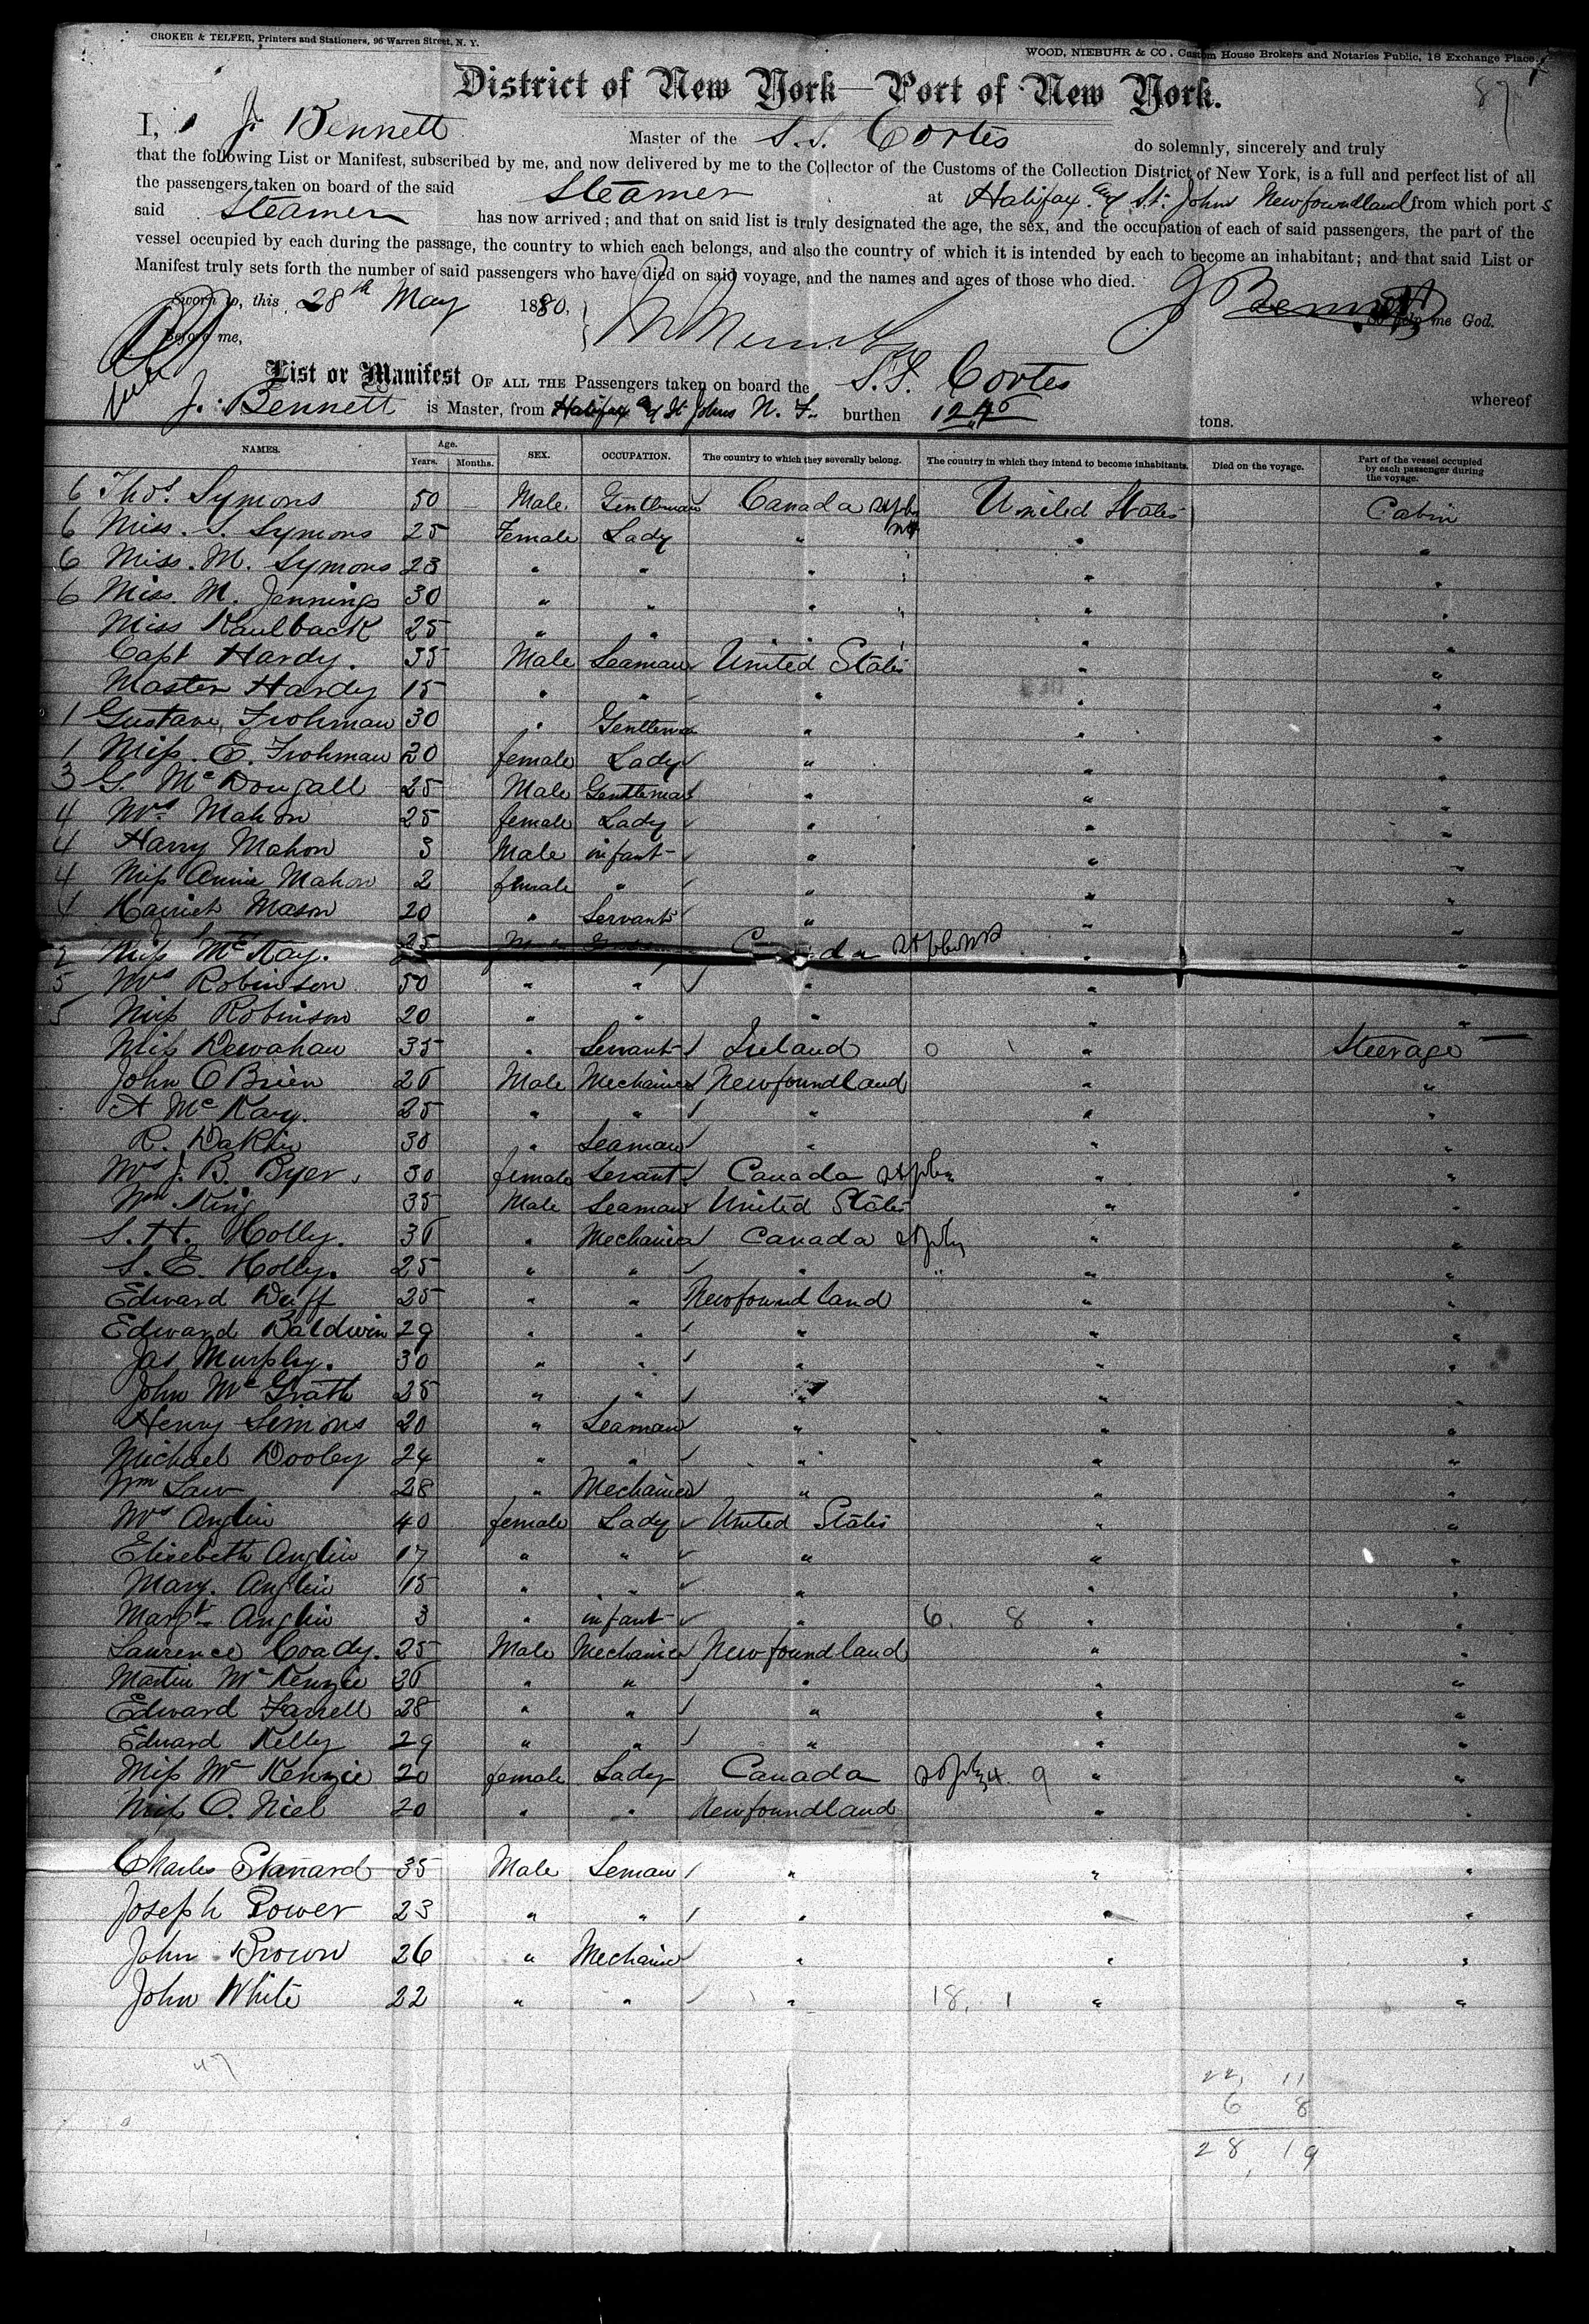 CROKER & TELFER, Printers and Stationers, 96 Warren Street, N. Y.
WOOD, NIEBUHR & CO., Custom House Brokers and Notaries Public, 18 Exchange Place.
87
District of New York—Port of New York.
I, J. Bennett Master of the S.S. Cortes do solemnly, sincerely and truly
that the following List or Manifest, subscribed by me, and now delivered by me to the Collector of the Customs of the Collection District of New York, is a full and perfect list of all
the passengers taken on board of the said Steamer at Halifax and St. Johns Newfoundland from which port s
said Steamer has now arrived; and that on said list is truly designated the age, the sex, and the occupation of each of said passengers, the part of the
vessel occupied by each during the passage, the country to which each belongs, and also the country of which it is intended by each to become an inhabitant; and that said List or
Manifest truly sets forth the number of said passengers who have died on said voyage, and the names and ages of those who died.
Sworn to, this 28th May 1880, J Bennett So help me God.
Before me,
List or Manifest OF ALL THE Passengers taken on board the S.S. Cortes whereof
J. Bennett is Master, from Halifax and St Johns N. F. burthen 1245 tons.
NAMES. Age. Years. Months. SEX. OCCUPATION. The country to which they severally belong. The country in which they intend to become inhabitants. Died on the voyage. Part of the vessel occupied by each passenger during the voyage.
6 Thos. Symons 50 Male Gentleman Canada United States Cabin
6 Miss. S. Symons 25 Female Lady " " "
6 Miss. M. Symons 23 " " " " "
6 Miss. M. Jennings 30 " " " " "
Miss Kaulback 25 " " " " "
Capt Hardy. 35 Male Seaman United States " "
Master Hardy 15 " " " " "
1 Gustave Frohman 30 " Gentleman " " "
1 Miss. E. Frohman 20 female Lady " " "
3 G. McDougall 25 Male Gentleman " " "
4 Mrs. Mahon 25 female Lady " " "
4 Harry Mahon 3 Male infant " " "
4 Miss Annie Mahon 2 female " " " "
4 Harriet Mason 20 " Servant " " "
2 Miss McKay. 25 Canada " "
5 Mrs Robinson 50 " " " " "
5 Miss Robinson 20 " " " "
Miss Dewahan 35 " Servant Ireland 0 " Steerage
John O Brien 26 Male Mechanic Newfoundland " "
A McKay. 25 " " " " "
R. Dakin 30 " Seaman " " "
Mrs J. B. Byer, 30 female Servant Canada " "
Wm King 35 Male Seaman United States " "
S. H. Holly. 36 " Mechanic Canada " "
S. E. Holly. 25 " " " " " "
Edward Duff 25 " " Newfoundland " "
Edward Baldwin 29 " " " " "
Jas Murphy. 30 " " " " "
John McGrath 25 " " " " "
Henry Simons 20 " Seaman " " "
Michael Dooley 24 " " " " "
Wm Law 28 " Mechanic " " "
Mrs Anglin 40 female Lady United States " "
Elisebeth Anglin 17 " " " " "
Mary. Anglin 15 " " " " "
Margt Anglin 3 " infant " 6. 8 " "
Laurence Coady. 25 Male Mechanic Newfoundland " "
Martin McKenzie 26 " " " " "
Edward Farrell 28 " " " " "
Edward Kelly 29 " " " " "
Miss McKenzie 20 female Lady Canada 4. 9 " "
Miss O. Niel 20 " " Newfoundland " "
Charles Stanard 35 Male Seman " " "
Joseph Power 23 " " " " "
John Brown 26 " Mechanic " " "
John White 22 " " " 18. 1 " "
47
22, 11
6 8
28, 19